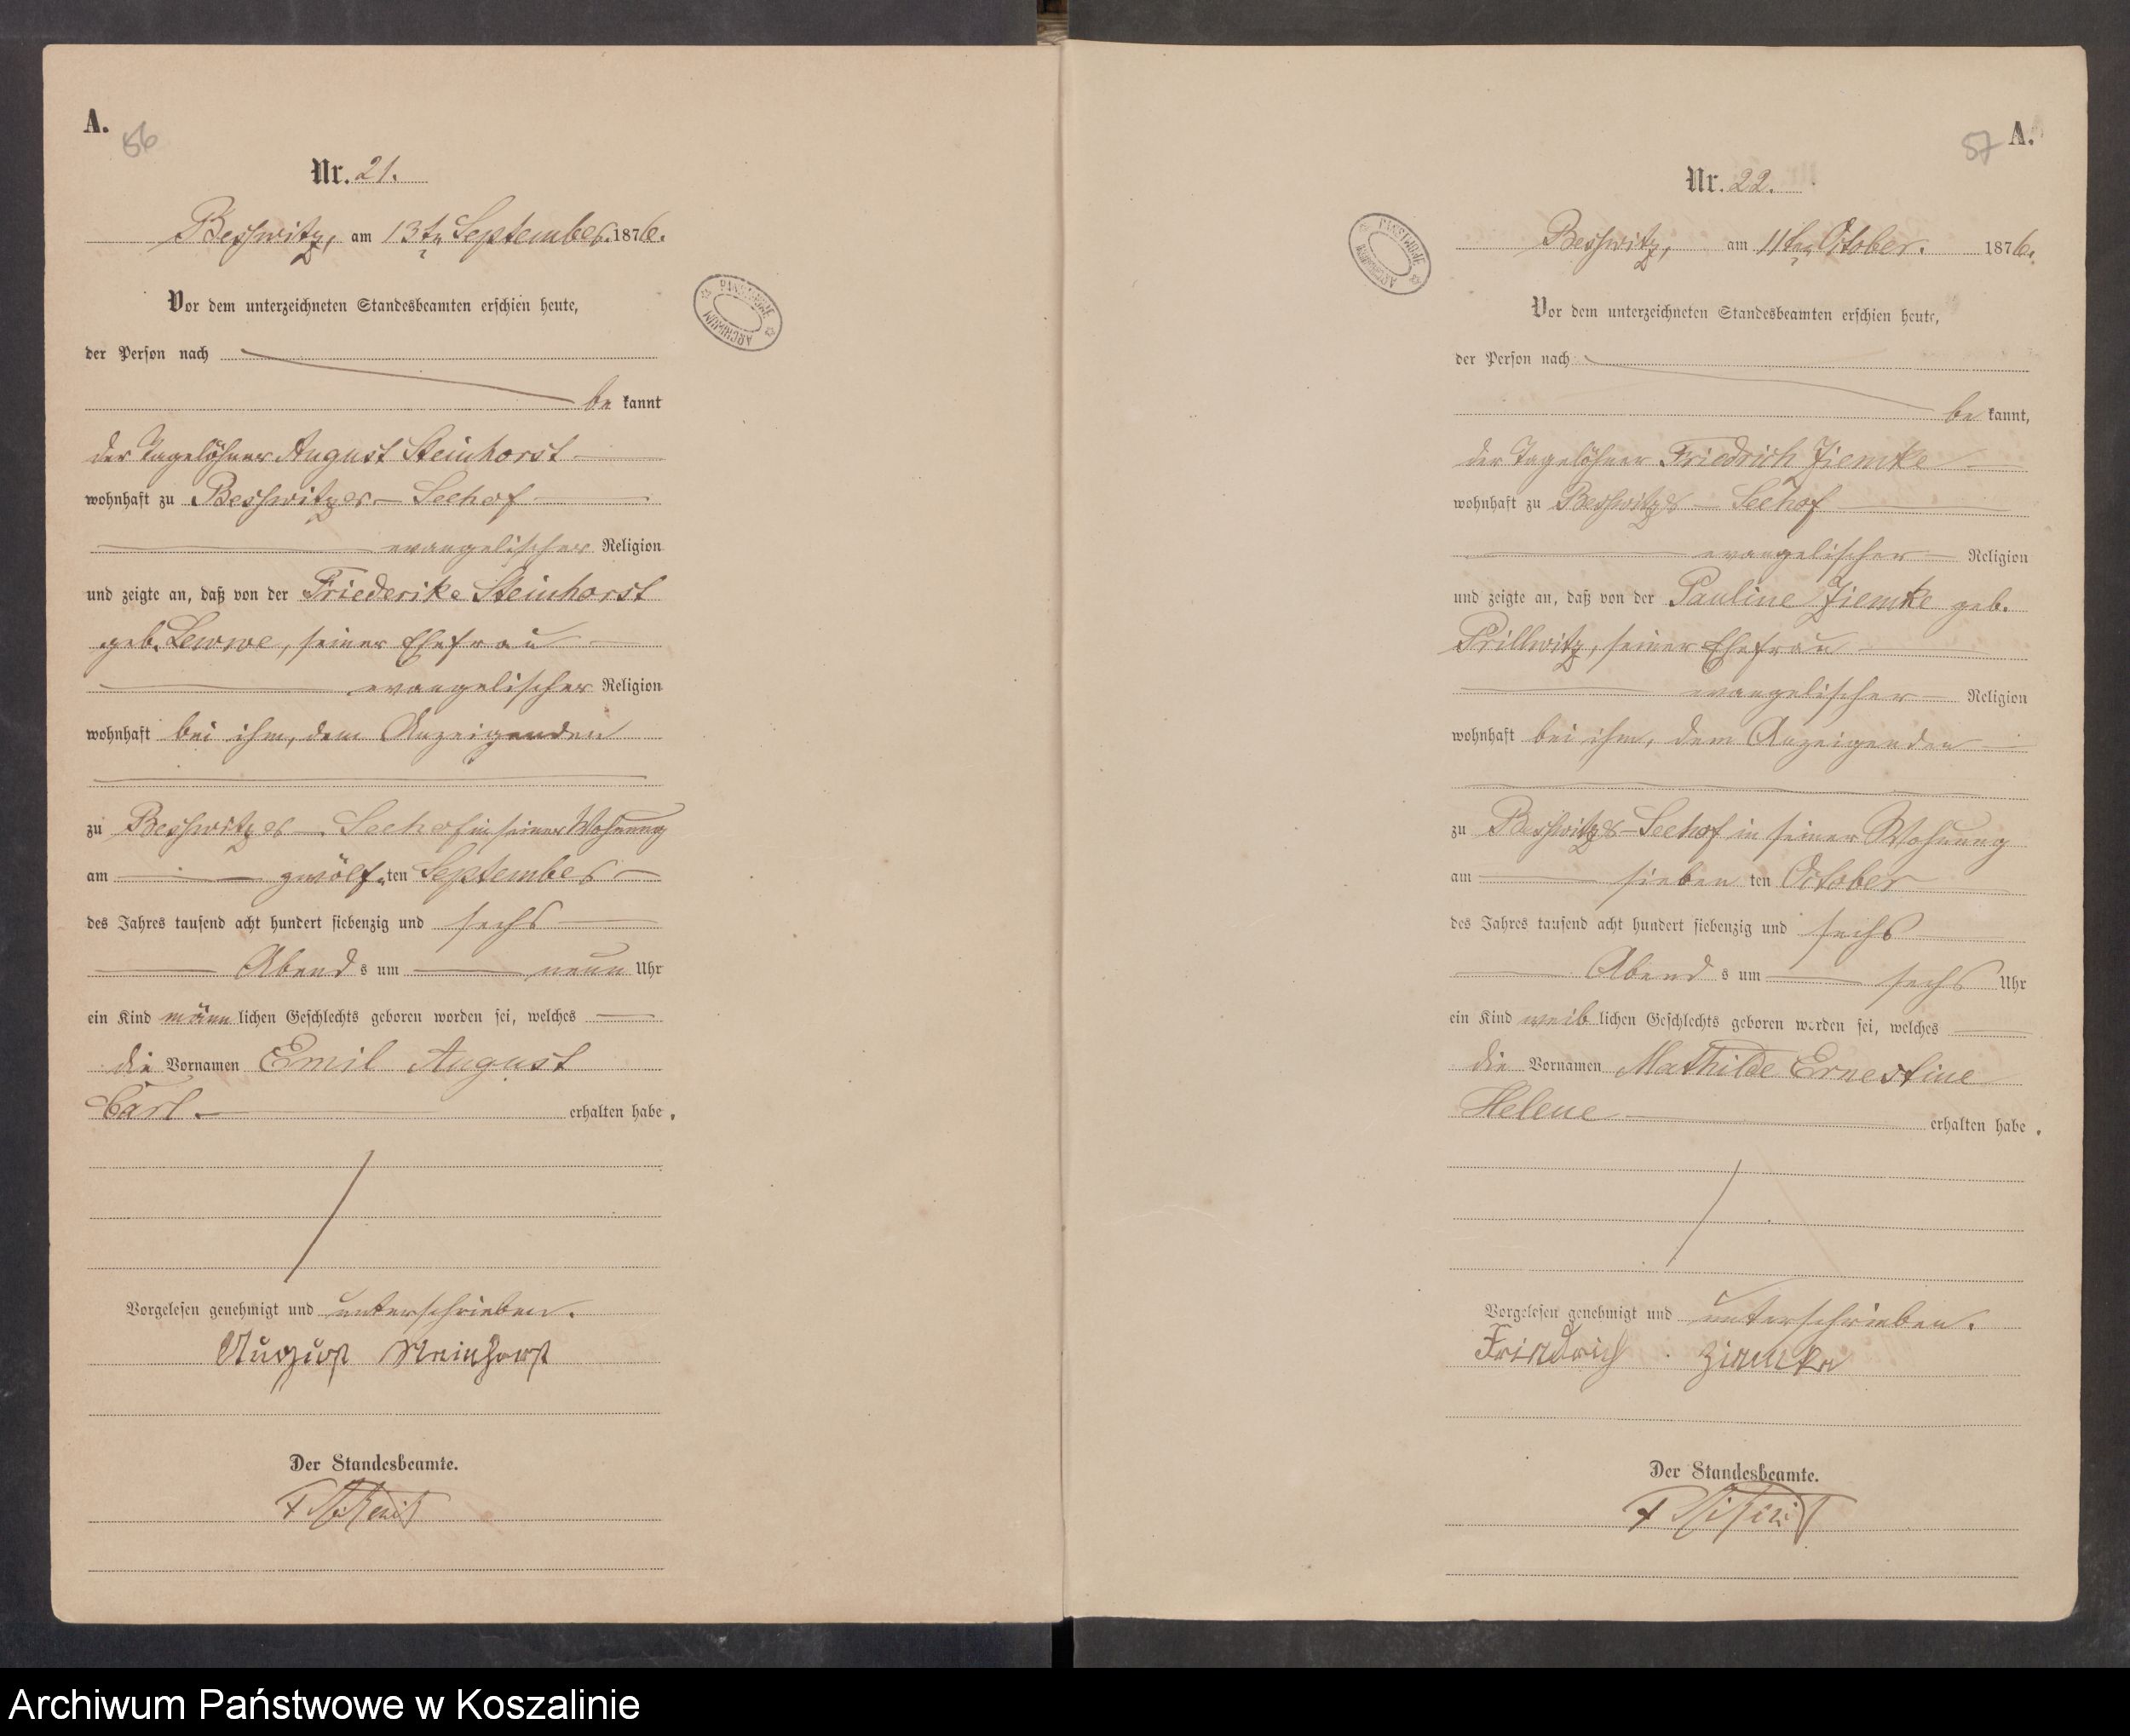 A.
56
Nr. 21.
Beßwitz, am 13ten September 1876.
Vor dem unterzeichneten Standesbeamten erschien heute,
der Person nach
be kannt
der Tagelöhner August Steinhorst
wohnhaft zu Beßwitzer-Seehof
evangelischer Religion
und zeigte an, daß von der Friederike Steinhorst
geb. Lewwe, seiner Ehefrau
evangelischer Religion
wohnhaft bei ihm, dem Anzeigenden
zu Beßwitzer-Seehof in seiner Wohnung
am zwölf ten September
des Jahres tausend acht hundert siebenzig und sechs
Abend s um neun Uhr
ein Kind männ lichen Geschlechts geboren worden sei, welches
die Vornamen Emil August
Carl erhalten habe.
Vorgelesen genehmigt und unterschrieben.
August Steinhorst
Der Standesbeamte.
PAŃSTWOWE
ARCHIWUM
57
A.
Nr. 22.
Beßwitz, am 11ten October. 1876.
Vor dem unterzeichneten Standesbeamten erschien heute,
der Person nach
be kannt,
der Tagelöhner Friedrich Ziemke
wohnhaft zu Beßwitzer-Seehof
evangelischer Religion
und zeigte an, daß von der Pauline Ziemke geb.
Prillwitz, seiner Ehefrau
evangelischer Religion
wohnhaft bei ihm, dem Anzeigenden
zu Beßwitzer-Seehof in seiner Wohnung
am sieben ten October
des Jahres tausend acht hundert siebenzig und sechs
Abend s um sechs Uhr
ein Kind weib lichen Geschlechts geboren worden sei, welches
die Vornamen Mathilde Ernestine
Helene erhalten habe.
Vorgelesen genehmigt und unterschrieben.
Friedrich Ziemke
Der Standesbeamte.
PAŃSTWOWE
ARCHIWUM
Archiwum Państwowe w Koszalinie